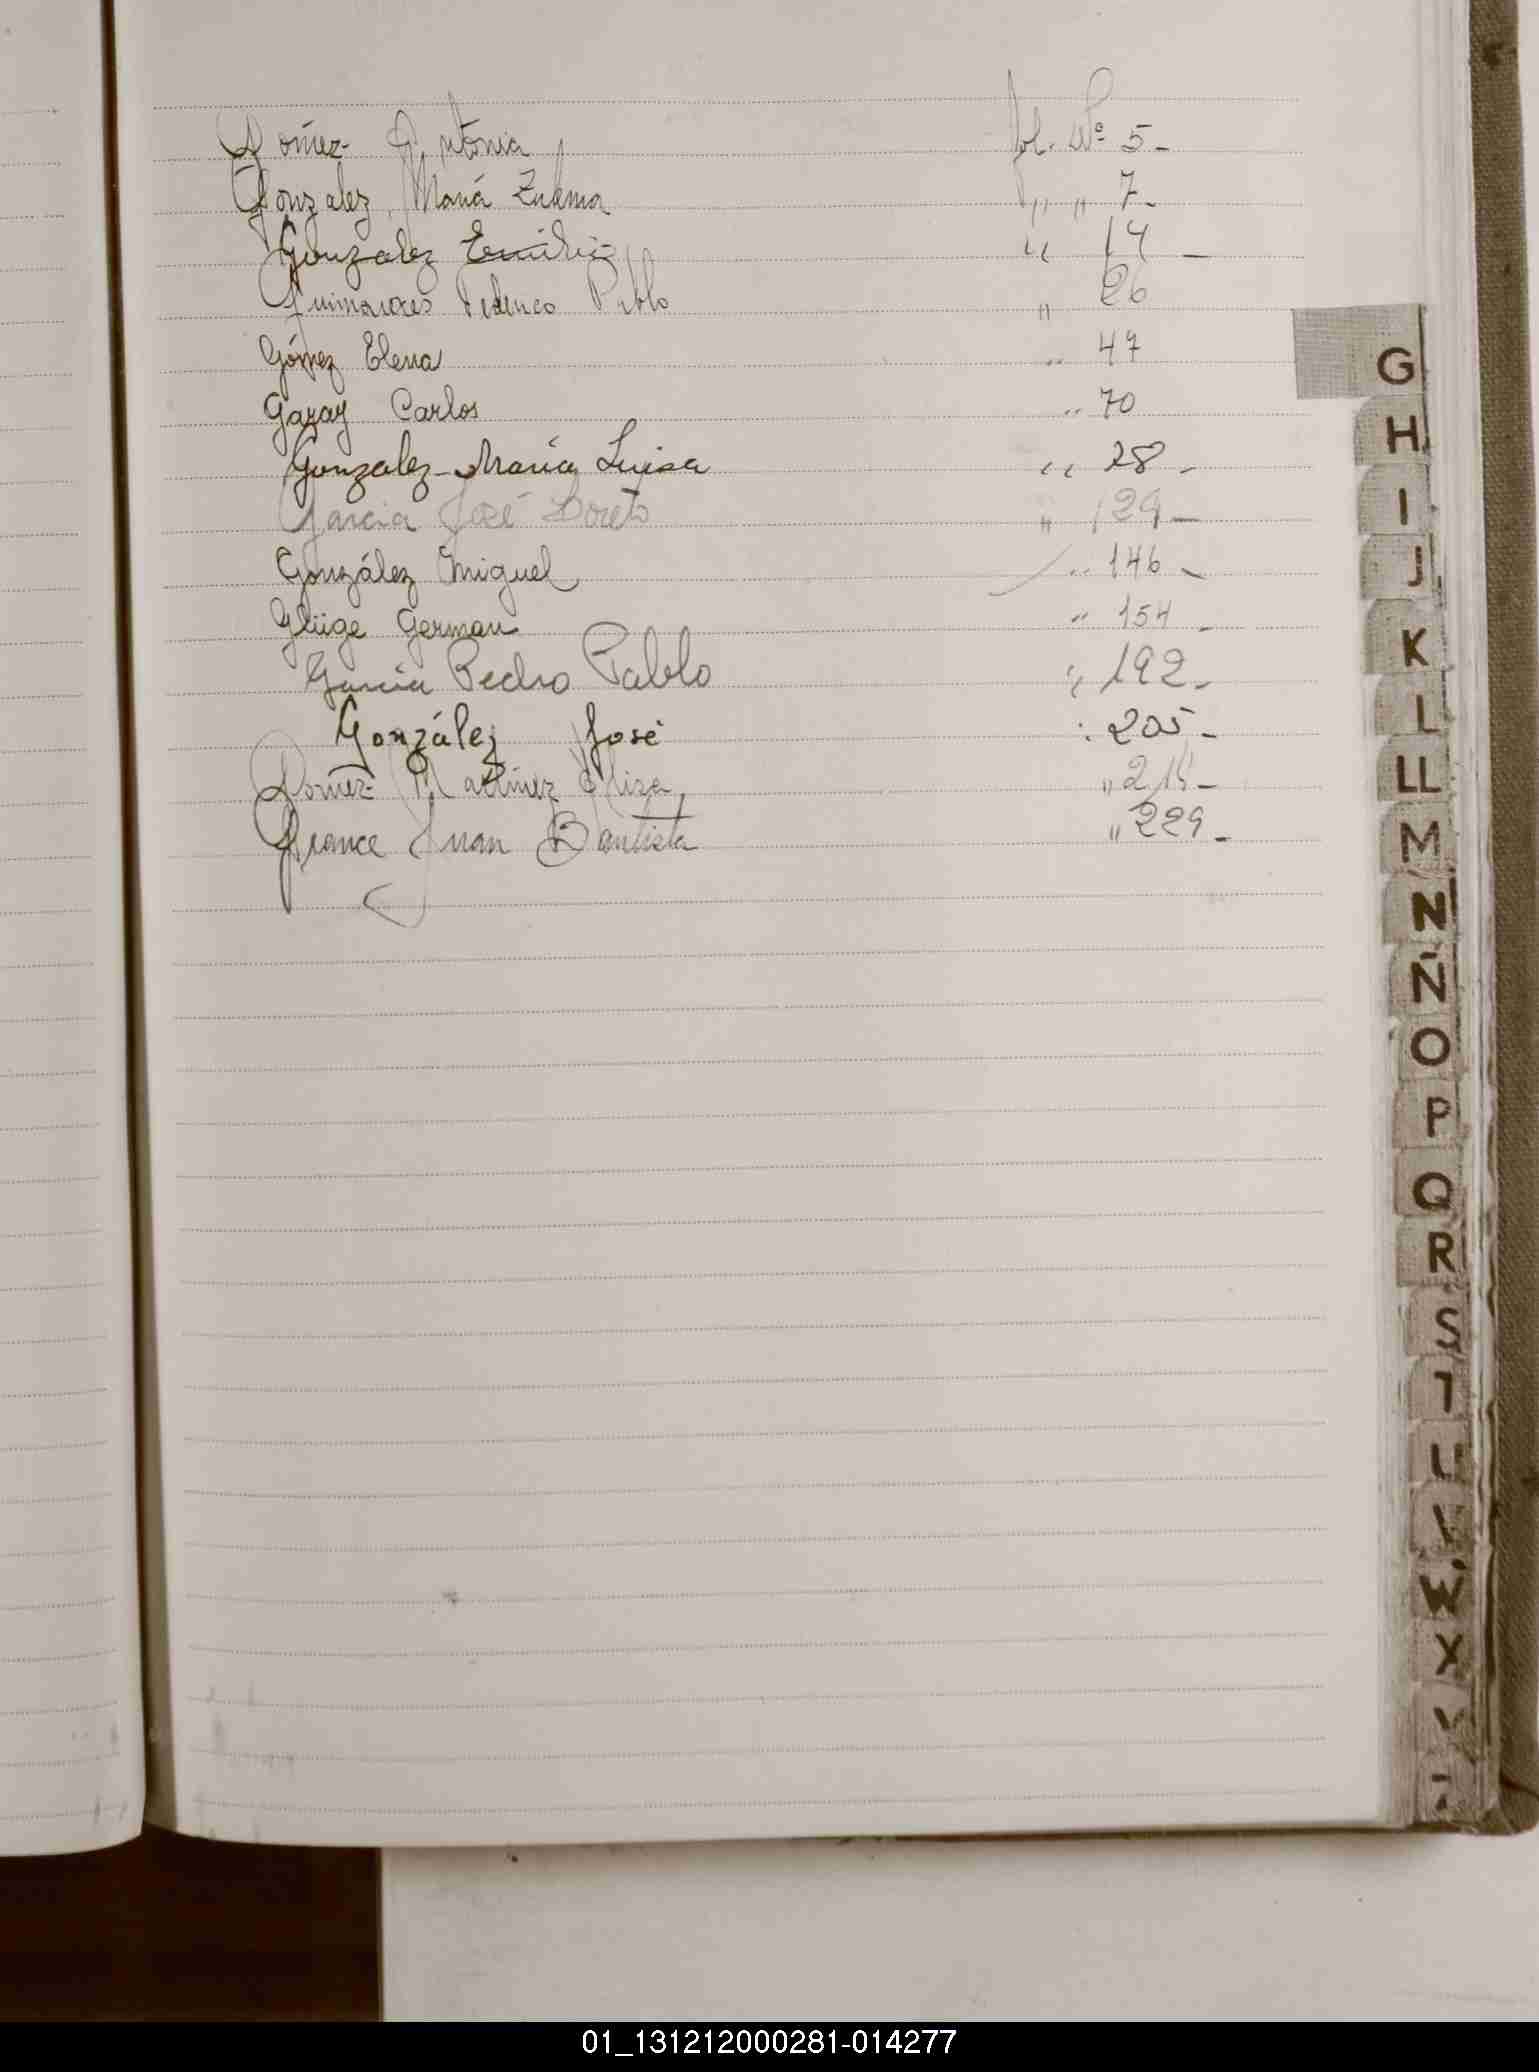 Gómez Antonia fol. Nº 5-
González, María Zulema " " 7-
Gonzalez Emilio " 14 -
Guimaraes Federico Pablo " 26
Gómez Elena " 47
Garay Carlos " 70
Gonzalez María Luisa " 28 -
Garcia José Loreto " 129-
González Miguel " 146 -
Glüge German " 154 -
Garcia Pedro Pablo " 192-
González José : 205-
Gómez Martínez Eliza " 215-
Grance Juan Bautista " 229-
G
H
I
J
K
L
LL
M
N
Ñ
O
P
Q
R
S
T
U
V
W
X
Y
01_131212000281-014277